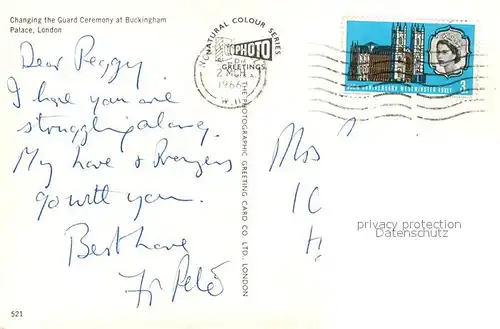 Changing the Guard Ceremony at Buckingham
Palace, London
Dear Peggy,
I have you are
struggling along.
My love & Prayers
go with you.
Best love
Fr Peter
521
NATURAL COLOUR SERIES
PHOTO
GREETINGS
THE PHOTOGRAPHIC GREETING CARD CO. LTD. LONDON
1966
900TH ANNIVERSARY WESTMINSTER ABBEY
3
privacy protection
Datenschutz